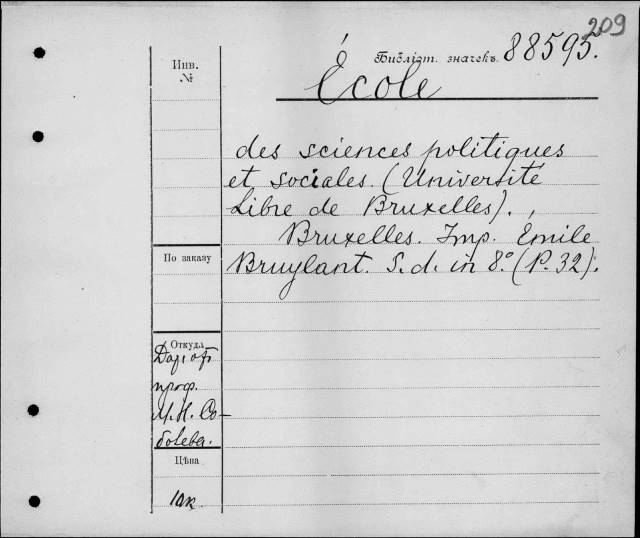 209
Инв. №
Бібліот. значекъ 88595.
École
des sciences politiques
et sociales. (Université
Libre de Bruxelles).
Bruxelles. Imp. Émile
Bruylant. S. d. in 8.° (P. 32).
По заказу
Откуда
Дар. от
проф.
М. Н. Со-
болева.
Цѣна
10к